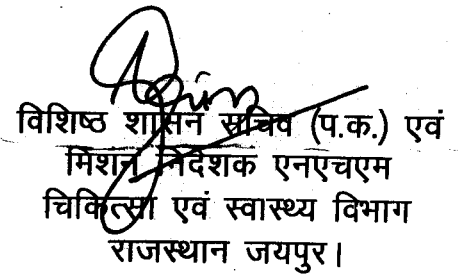 विशिष्ठ शासन सचिव (प.क.) एवं
मिशन निदेशक एनएचएम
चिकित्सा एवं स्वास्थ्य विभाग
राजस्थान जयपुर।